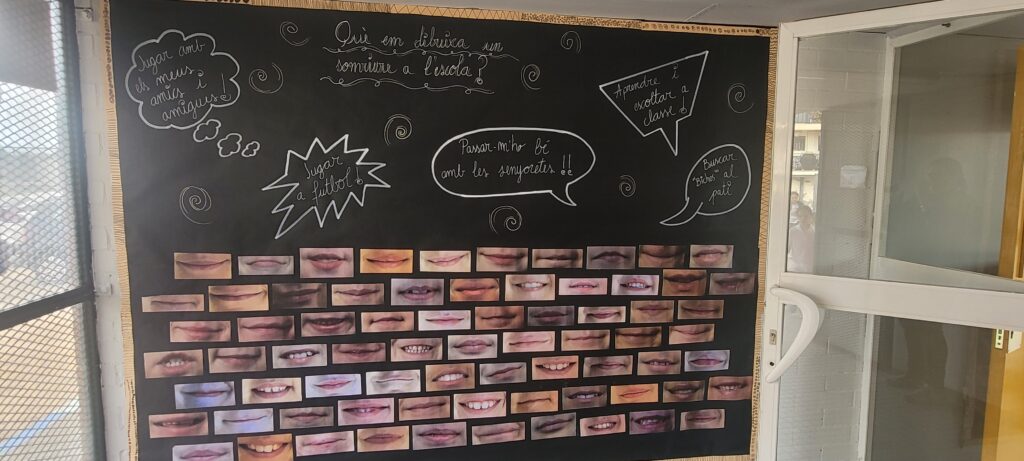 Què em dibuixa un
somriure a l'escola?
Jugar amb
els meus
amics i
amigues!
Jugar
a futbol!
Passar-m'ho bé
amb les senyoretes!!
Aprendre i
escoltar a
classe!
Buscar
"Bichos" al
pati!